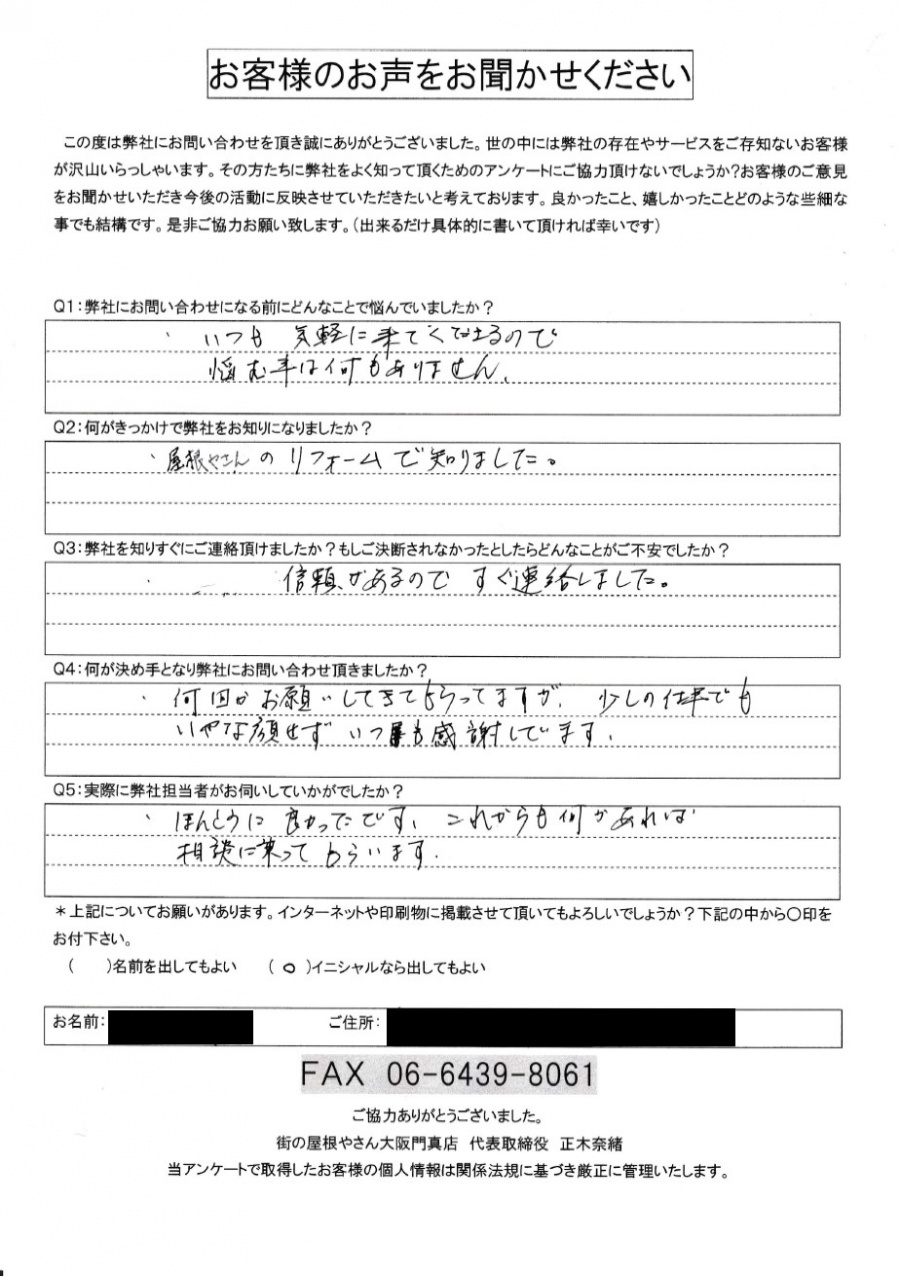 お客様のお声をお聞かせください
この度は弊社にお問い合わせを頂き誠にありがとうございました。世の中には弊社の存在やサービスをご存知ないお客様
が沢山いらっしゃいます。その方たちに弊社をよく知って頂くためのアンケートにご協力頂けないでしょうか?お客様のご意見
をお聞かせいただき今後の活動に反映させていただきたいと考えております。良かったこと、嬉しかったことどのような些細な
事でも結構です。是非ご協力お願い致します。(出来るだけ具体的に書いて頂ければ幸いです)
Q1:弊社にお問い合わせになる前にどんなことで悩んでいましたか?
・いつも 気軽に来てくださるので
悩む事は何もありません。
Q2:何がきっかけで弊社をお知りになりましたか?
・屋根やさんの リフォームで知りました。
Q3:弊社を知りすぐにご連絡頂けましたか?もしご決断されなかったとしたらどんなことがご不安でしたか?
・信頼があるので すぐ連絡しました。
Q4:何が決め手となり弊社にお問い合わせ頂きましたか?
・何回かお願いしてきてもらってますが、少しの仕事でも
いやな顔せず いつも感謝してます。
Q5:実際に弊社担当者がお伺いしていかがでしたか?
・ほんとうに良かったです。これからも何かあれば
相談に乗ってもらいます。
*上記についてお願いがあります。インターネットや印刷物に掲載させて頂いてもよろしいでしょうか?下記の中から〇印を
お付下さい。
( )名前を出してもよい (〇)イニシャルなら出してもよい
お名前: ご住所:
FAX 06-6439-8061
ご協力ありがとうございました。
街の屋根やさん大阪門真店 代表取締役 正木奈緒
当アンケートで取得したお客様の個人情報は関係法規に基づき厳正に管理いたします。